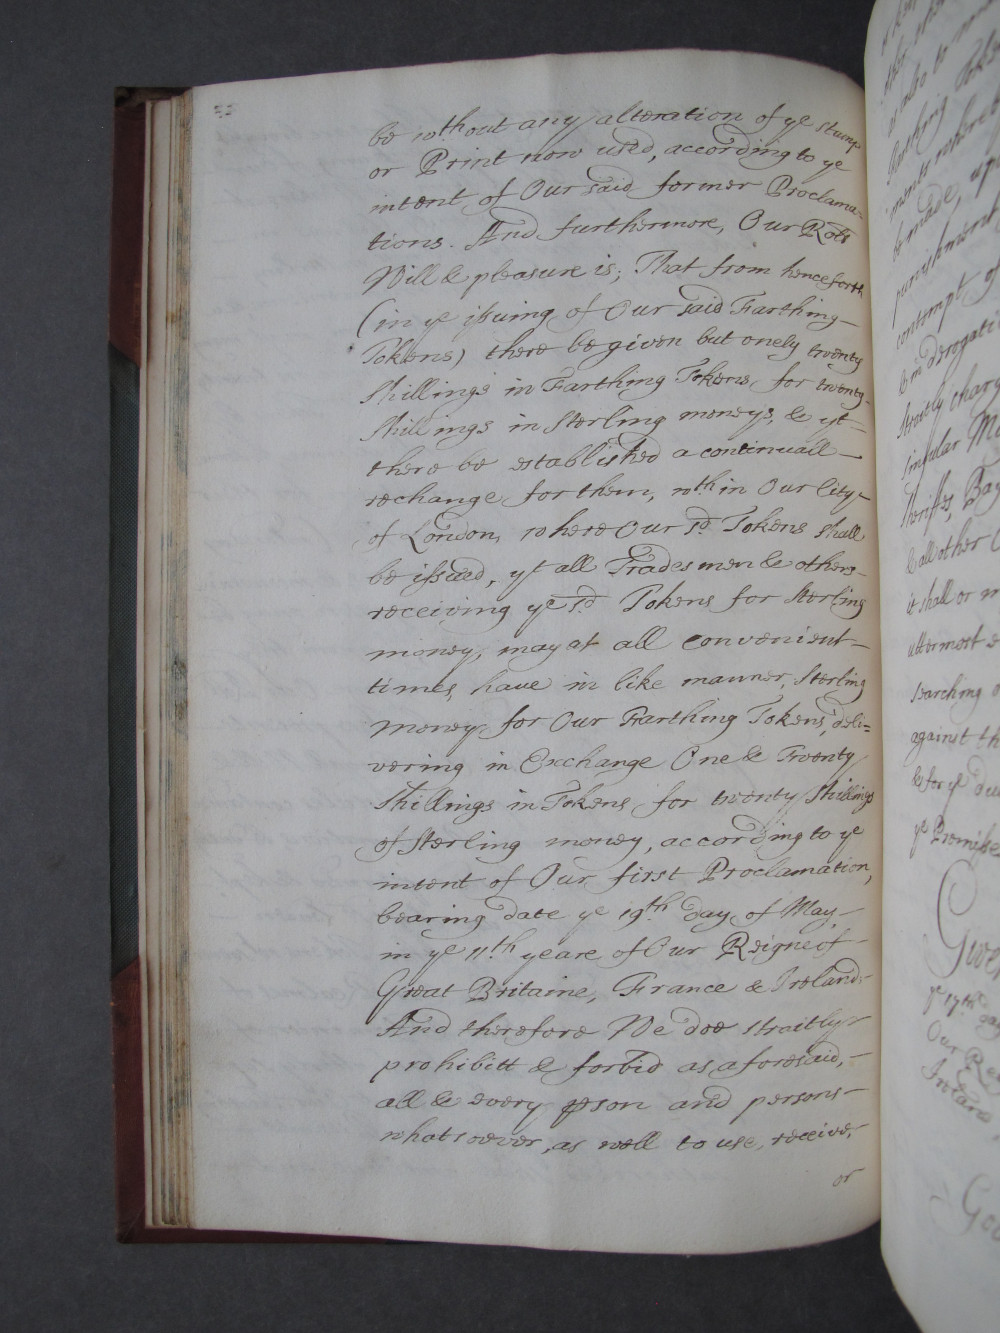 be wthout any alteration of ye stamp
or Print now used, according to ye
intent of Our said former Proclama=
tions. And furthermore, Our Roll
Will & pleasure is; That from henceforth
(in ye issuing of Our said Farthing
Tokens) there be given but onely twenty
Shillings in Farthing Tokens, for twenty
Shillings in Sterling moneys, & yt
there be established a continuall
rechange for them, wthin Our City
of London, where Our sd. Tokens shall
be issued, yt all Tradesmen & others
receiving ye sd Tokens for Sterling
money, may at all convenient
times, have in like manner, Sterling
money, for Our Farthing Tokens, deli=
vering in Exchange One & Twenty
Shillings in Tokens for twenty Shillings
of Sterling money, according to ye
intent of Our first Proclamation,
bearing date ye 19th day of May,
in ye 11th yeare of Our Reigne of
Great Britaine, France & Ireland:
And therefore We doe straitly
prohibitt & forbid as aforesaid,
all & every pson and persons
whatsoever, as well to use, receive,
or
also to
Farthing Toke
ments whereb
to made, up
punishment
contempt of
& in derogati
straitly charg
singular Ma
Sheriffes, Bay
& all other O
it shall or m
uttermost e
searching o
against th
& for ye due
ye Premisse
Given
ye 17th day
Our Rei
Ireland
God